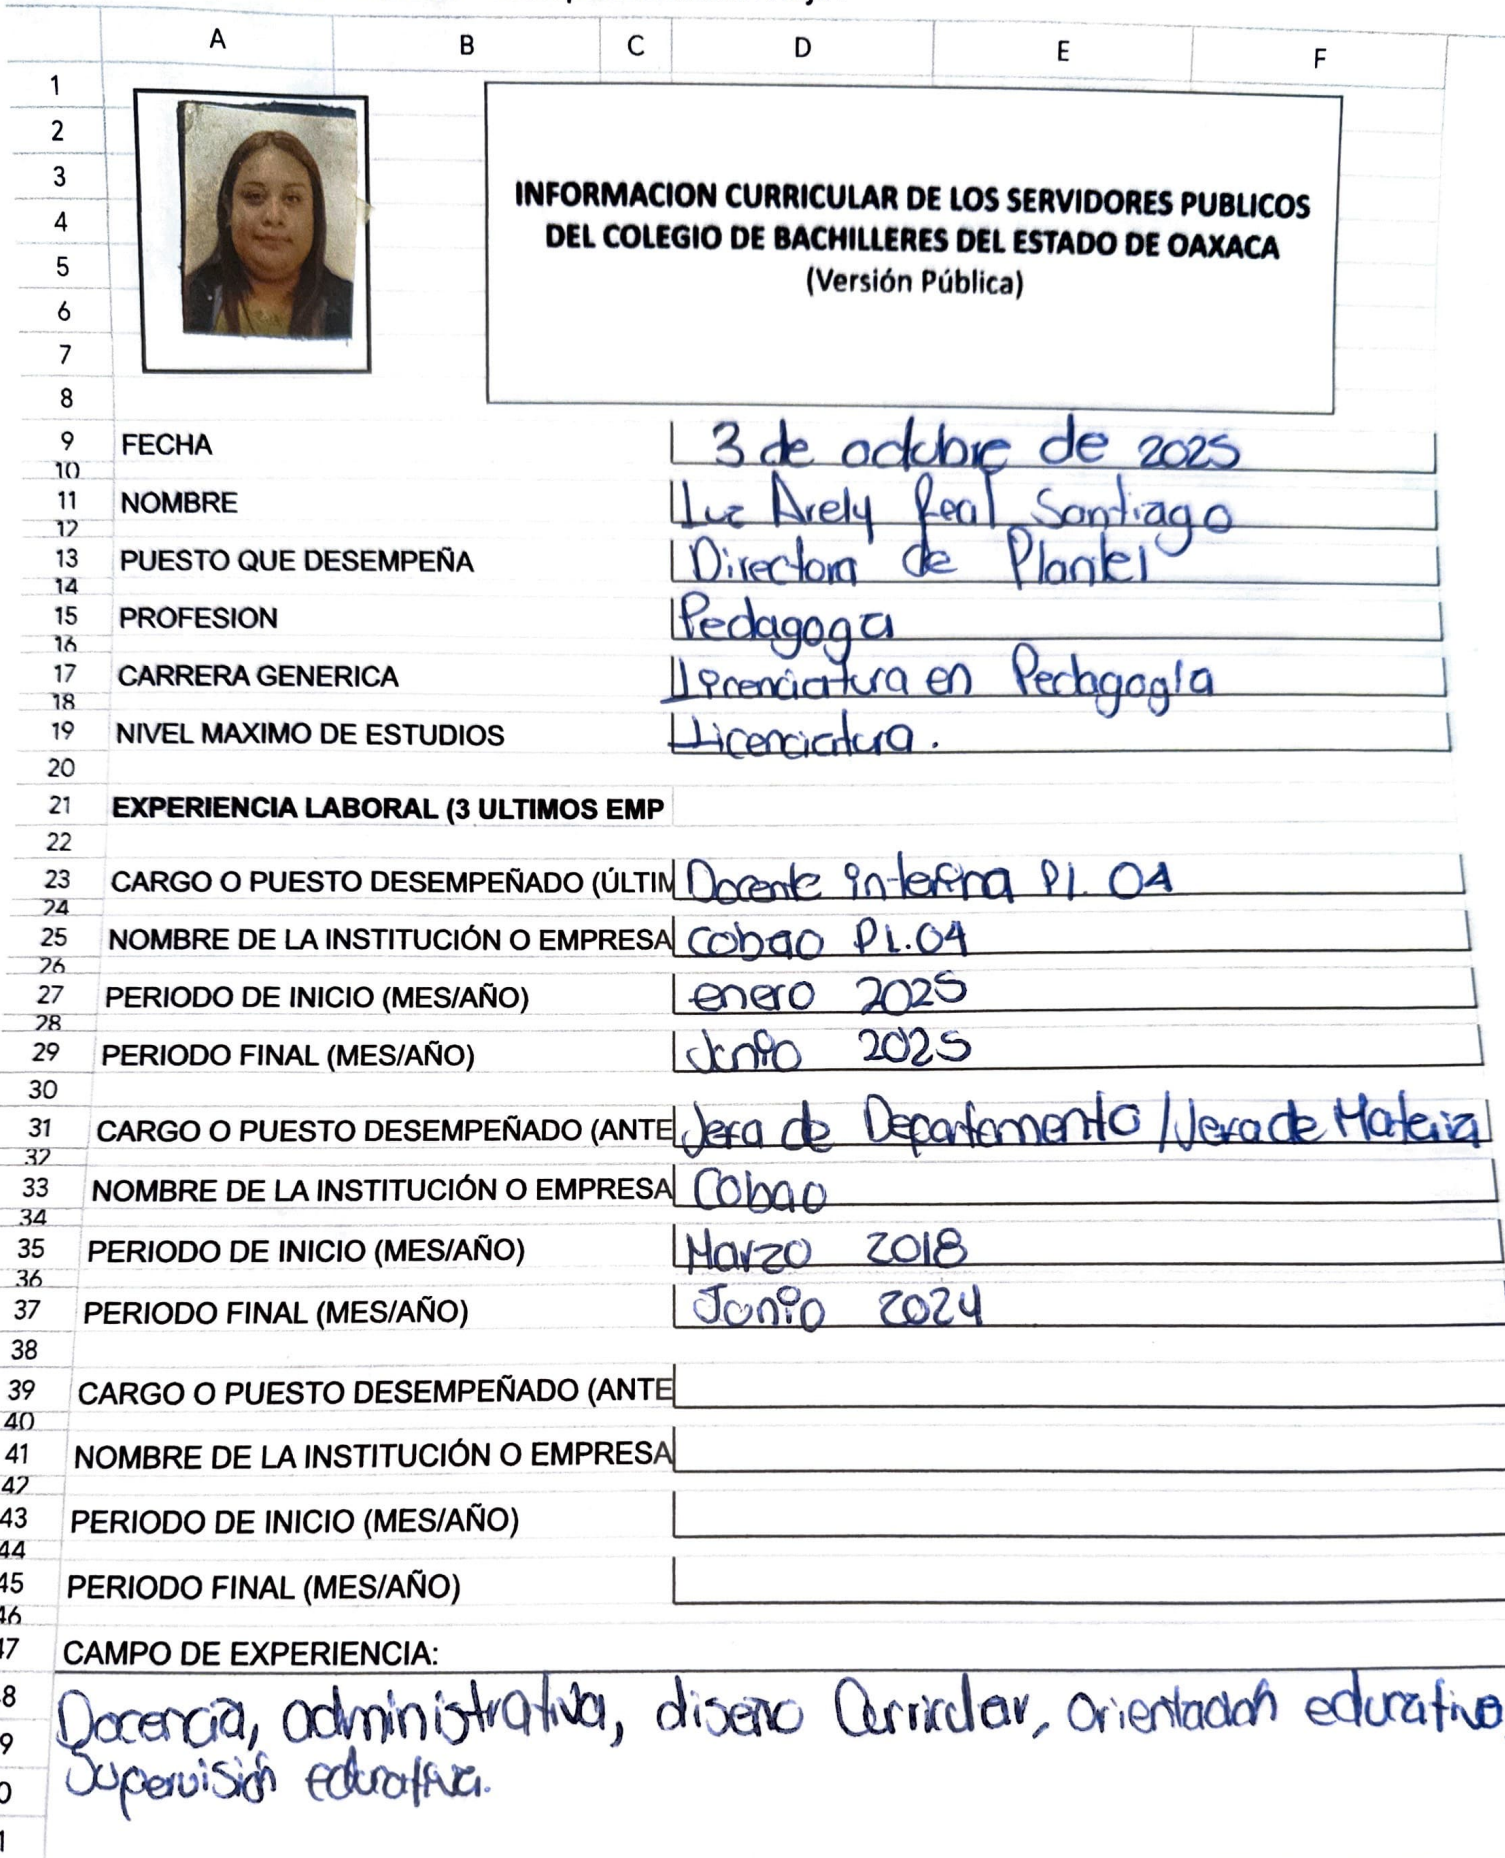 A B C D E F
1
2
3 INFORMACION CURRICULAR DE LOS SERVIDORES PUBLICOS
4 DEL COLEGIO DE BACHILLERES DEL ESTADO DE OAXACA
5 (Versión Pública)
6
7
8
9 FECHA 3 de octubre de 2025
10
11 NOMBRE Luz Arely Real Santiago
12
13 PUESTO QUE DESEMPEÑA Directora de Plantel
14
15 PROFESION Pedagoga
16
17 CARRERA GENERICA Licenciatura en Pedagogía
18
19 NIVEL MAXIMO DE ESTUDIOS Licenciatura.
20
21 EXPERIENCIA LABORAL (3 ULTIMOS EMP
22
23 CARGO O PUESTO DESEMPEÑADO (ÚLTIM Docente interina Pl. 04
24
25 NOMBRE DE LA INSTITUCIÓN O EMPRESA Cobao PL.04
26
27 PERIODO DE INICIO (MES/AÑO) enero 2025
28
29 PERIODO FINAL (MES/AÑO) Junio 2025
30
31 CARGO O PUESTO DESEMPEÑADO (ANTE Jefa de Departamento / Jefa de Materia
32
33 NOMBRE DE LA INSTITUCIÓN O EMPRESA Cobao
34
35 PERIODO DE INICIO (MES/AÑO) Marzo 2018
36
37 PERIODO FINAL (MES/AÑO) Junio 2024
38
39 CARGO O PUESTO DESEMPEÑADO (ANTE
40
41 NOMBRE DE LA INSTITUCIÓN O EMPRESA
42
43 PERIODO DE INICIO (MES/AÑO)
44
45 PERIODO FINAL (MES/AÑO)
46
47 CAMPO DE EXPERIENCIA:
8 Docencia, administrativa, diseño Curricular, orientación educativa
9 Supervisión educativa.
0
1